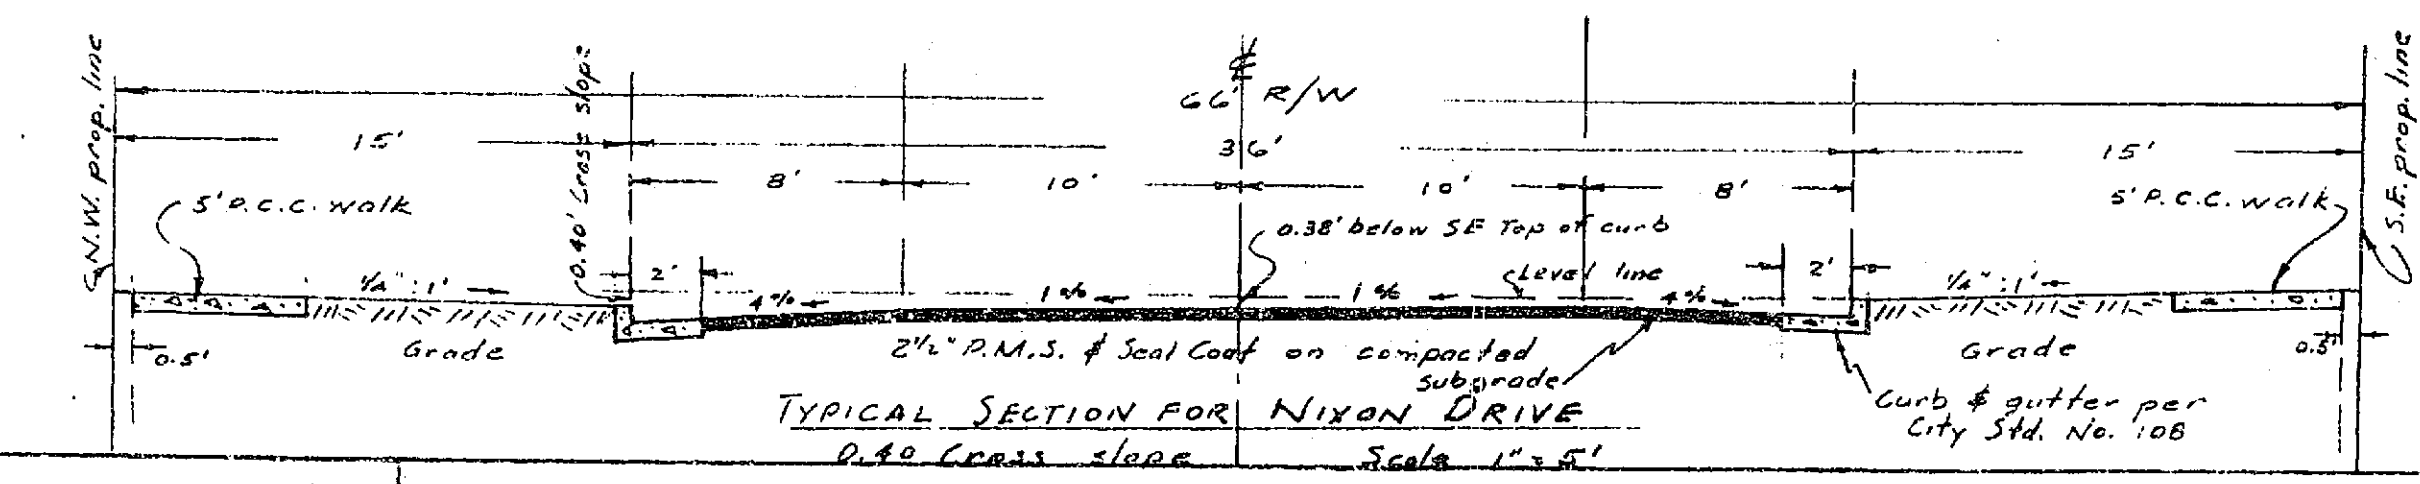 N.W. prop. line
S.E. prop. line
0.40' Cross slope
℄
66' R/W
15'
36'
15'
8'
10'
10'
8'
5' P.C.C. walk
5' P.C.C. walk
0.38' below SE Top of curb
Level line
2'
2'
1/4" : 1'
4%
1%
1%
4%
1/4" : 1'
0.5'
Grade
2 1/2" P.M.S. & Seal Coat on compacted
subgrade
Grade
0.5'
Curb & gutter per
City Std. No. 108
TYPICAL SECTION FOR NIXON DRIVE
0.40 Cross slope Scale 1" = 5'